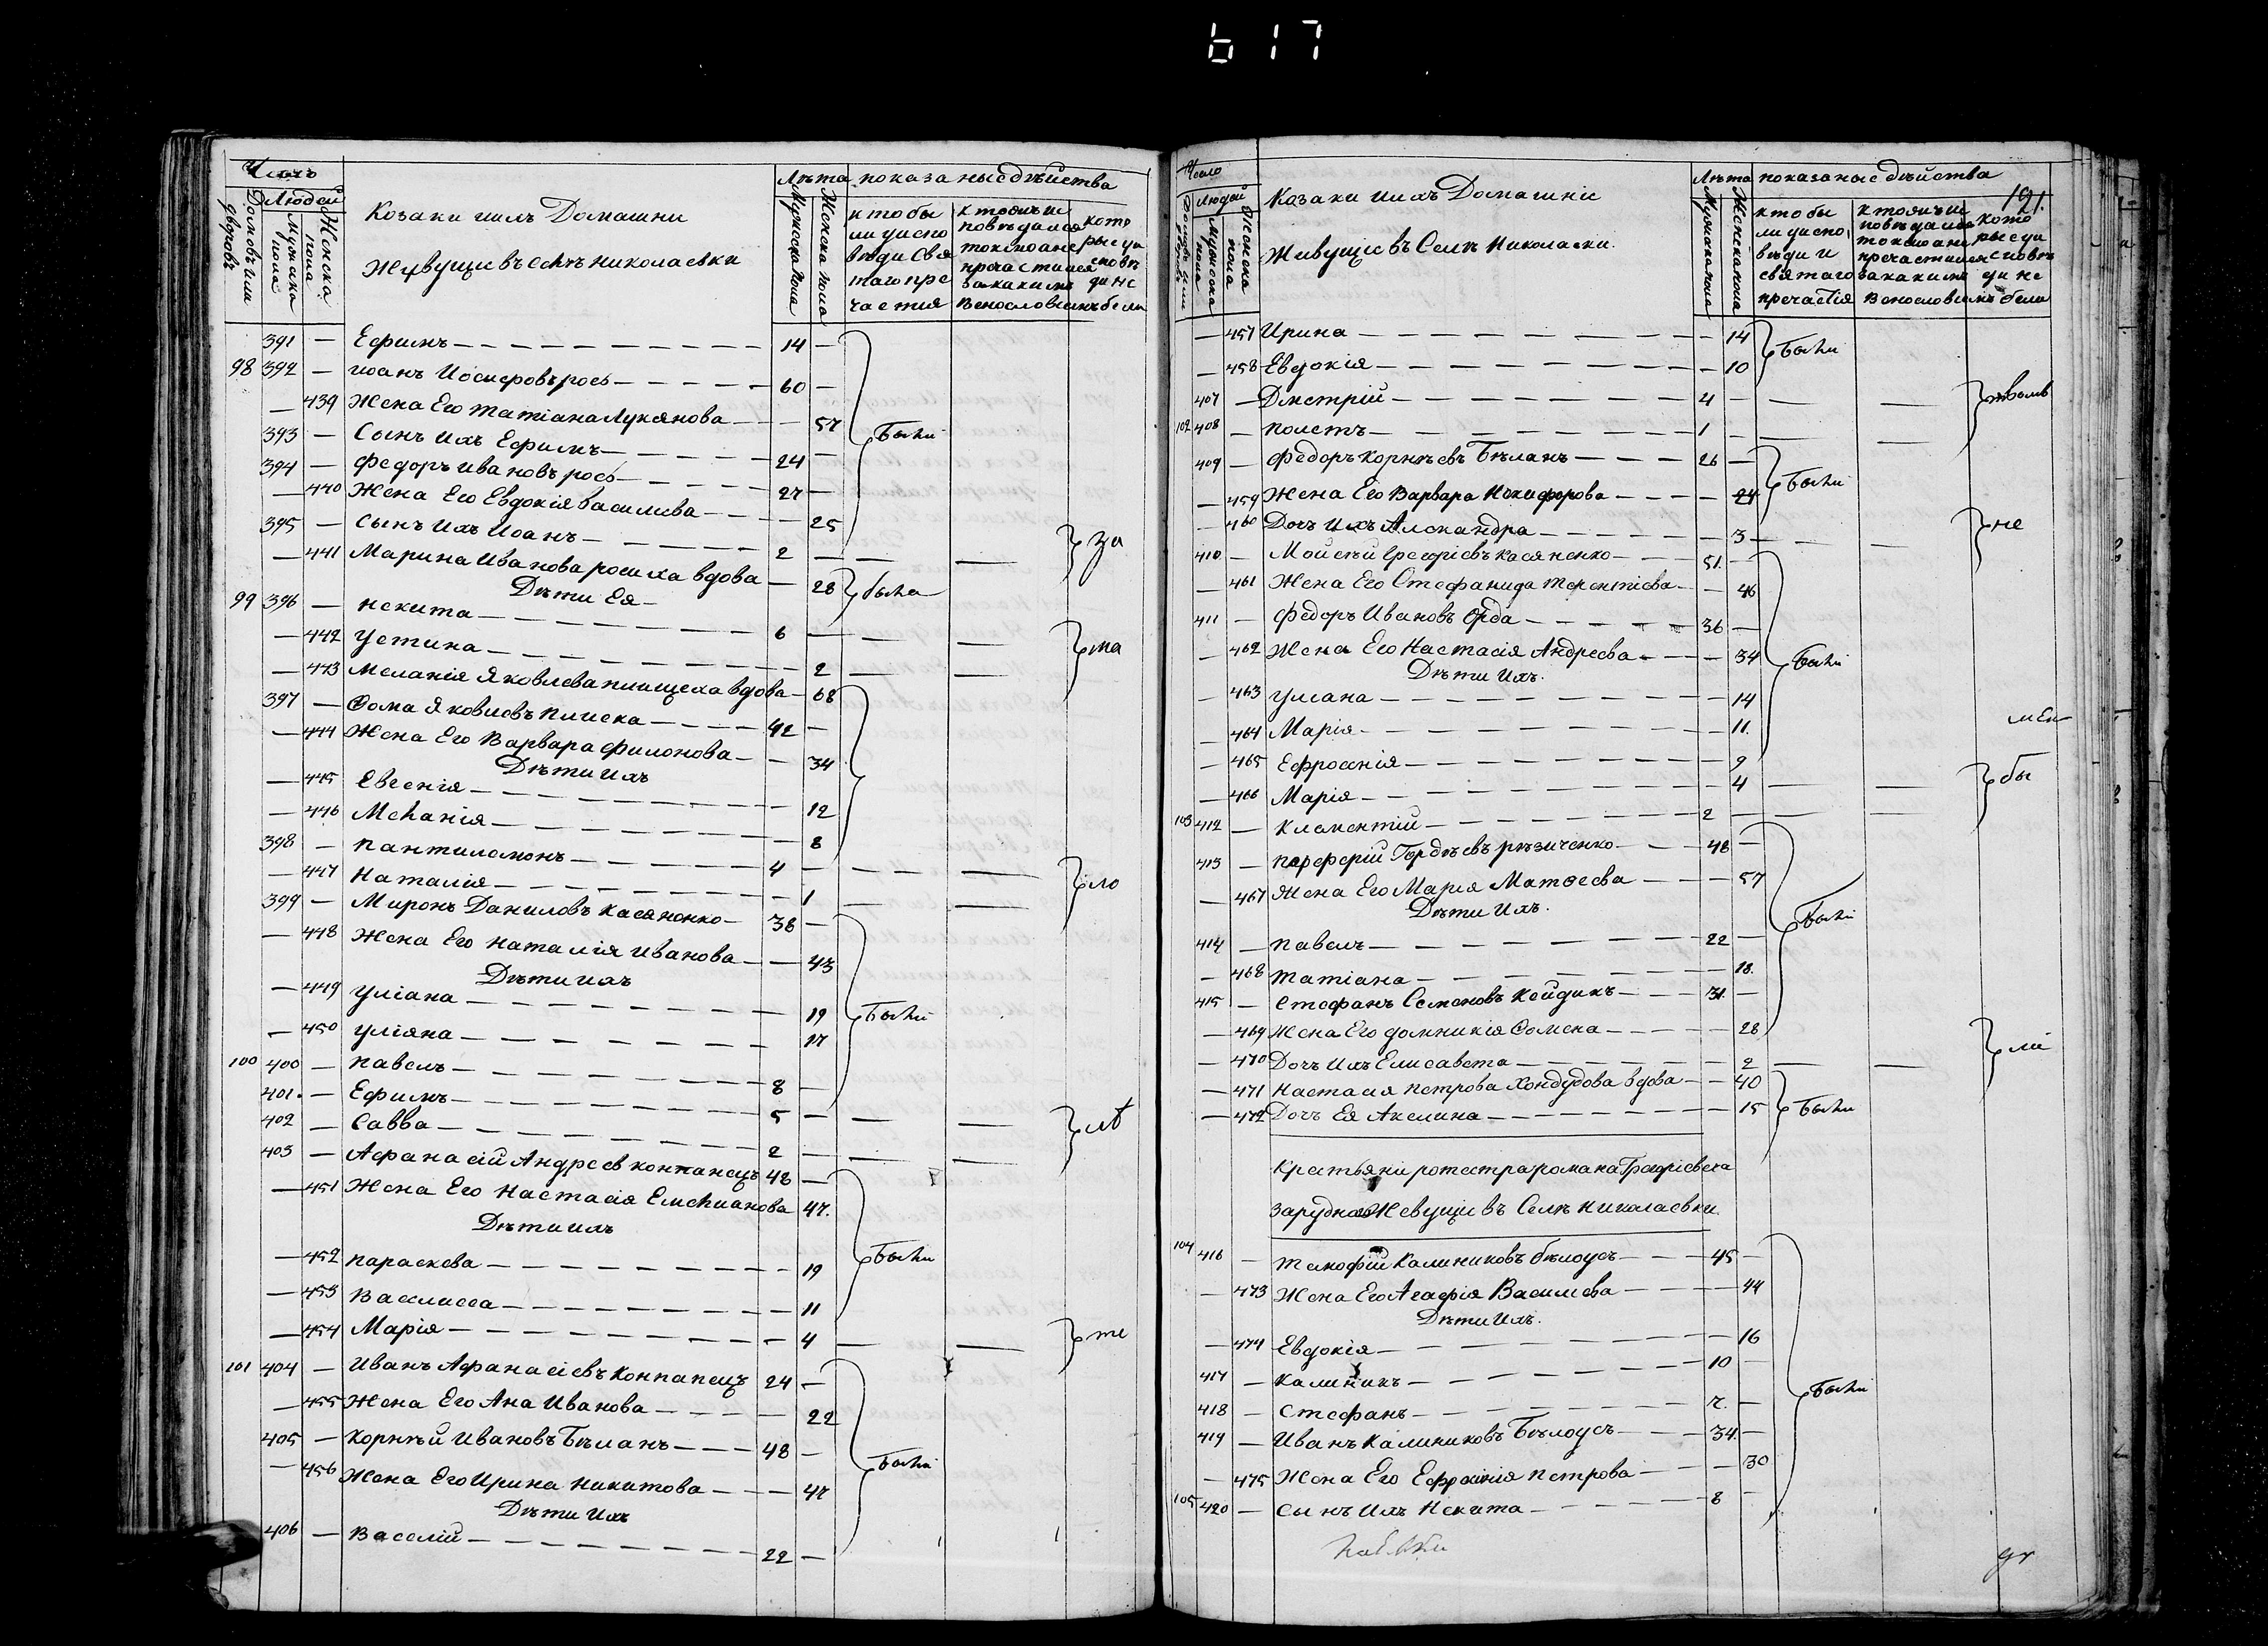 617
Число
Людей
Домовъ или дворовъ
Мужеска пола
Женска пола
Козаки иихъ Домашни
Жувущи въ Селъ николаевки
Лѣта
Мужеска пола
Женска пола
показаные дѣйства
кто бы ли у испо вѣди Свя таго при частия
391 — Ефимъ — 14 —
98 392 — иоанъ Иосифовъ рось — 60 —
— 439 Жена Его татіана Лукянова — 57
393 — Сынъ ихъ Ефимъ — 24 — Были
394 — Федоръ ивановъ рось — 27 —
— 440 Жена Его Евдокія василиева — 25
395 — Сынъ ихъ Иоанъ — 2 — — — за
— 441 Марина Иванова росиха вдова — 28 была
Дѣти Ея
99 396 — некита — 6 — — —
— 442 устина — 2 — — на
— 443 Меланія Яковлева плищеха вдова — 68
397 — Фома Яковлевъ плиска — 42 —
— 444 Жена Его Варвара филонова — 34
Дѣти ихъ
— 445 Евгенія — 12
— 446 Меланія — 8
398 — пантилемонъ — 4 — — —
— 447 Наталія — 1 — — ло
399 — Миронъ Даниловъ касяненко — 38 —
— 448 Жена Его наталія иванова — 43
Дѣти ихъ
— 449 уліана — 19 Были
— 450 уліяна — 17
100 400 — павелъ — 8 —
401. — Ефимъ — 5 — — —
402 — Савва — 2 — — — лѣ
403 — Афанасій Андреев конпанецъ 48 —
— 451 Жена Его настасія Емелианова 47.
Дѣти ихъ
— 452 параскева — 19 Были
— 453 Василиса — 11
— 454 Марія — 4 — — те
101 404 — Иванъ Афанасіевъ Конпанецъ 24 —
— 455 Жена Его Ана Иванова — 22
405 — Корнѣй Ивановъ Бѣланъ — 48 —
— 456 Жена Его Ирина никитова — 47 Были
Дѣти ихъ
406 — Василій — 22 —
Число
Людей
Мужеска пола
Женска пола
Козаки иихъ Домашніе
Живущіе въ Селѣ Николаевки.
Лѣта
Мужеска пола
Женска пола
показаные дѣйства
191.
кто бы ли у испо вѣди и святаго причастія
— 457 Ирина — 14 Были
— 458 Евдокія — 10
407 — Дмстрій — 4 — — —
102 408 — полетъ — 1 — — —
409 — Федоръ корнѣевъ Бѣланъ — 26 —
— 459 Жена Его Варвара Некифорова — 24 Были
— 460 Доч ихъ Алекандра — 3 — — не
410 — Мойсѣй касяненко — 51. —
— 461 Жена Его Стефанида терентіева — 46
411 — Федоръ Ивановъ Орда — 36 —
— 462 Жена Его Настасія Андреева — 34 Были
Дѣти Ихъ.
— 463 улиана — 14
— 464 Марія — 11.
— 465 Ефросинія — 9
— 466 Марія — 4 — — бы
103 412 — Клементій — 2 — — —
413 — Гордѣевъ рѣзниченко — 48 —
— 467 Жена Его Марія Матѳеева — 57
Дѣти Ихъ. Были
414 — павелъ — 22 —
— 468 татіана — 18.
415 — Стефанъ Семеновъ Кейдикъ — 31. —
— 469 Жена Его домникія Фомена — 28
— 470 Доч ихъ Елисавета — 2 — — ли
— 471 Настасія петрова Хондудова вдова — 40
— 472 Доч Ея Акелина — 15 Были
Крестьяни ротмстра романа
заруднаго Жевущи въ Селѣ николаевки
104 416 — тимофій Калиниковъ бѣлоусъ — 45 —
— 473 Жена Его Агафія Василиева — 44
Дѣти Ихъ.
— 474 Евдокія — 16
417 — Калиникъ — 10 — Были
418 — Стефанъ — 7. —
419 — Иванъ Калиниковъ Бѣлоусъ — 34. —
— 475 Жена Его Ефросинія петрова — 30
105 420 — Сынъ Ихъ Некита — 8 —